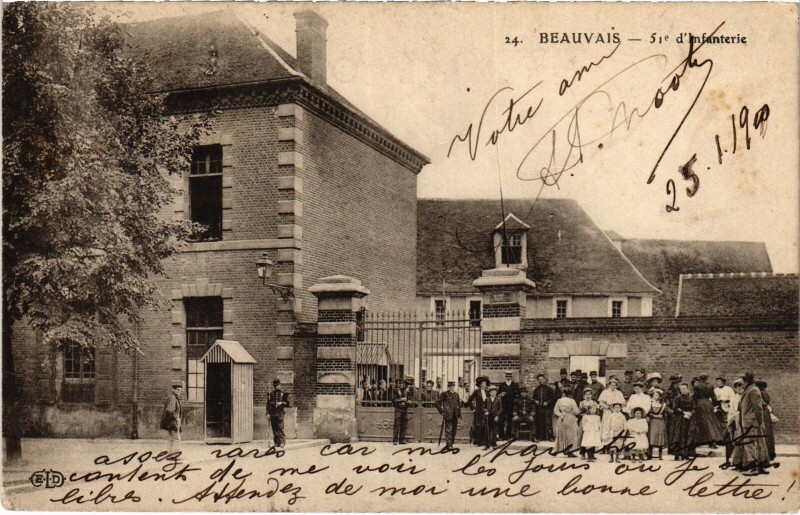 24. BEAUVAIS — 51e d'Infanterie
Votre ami
25.1.190
assez rares car mes parents sont
contents de me voir les jours où je suis
libres. Attendez de moi une bonne lettre !
ELD